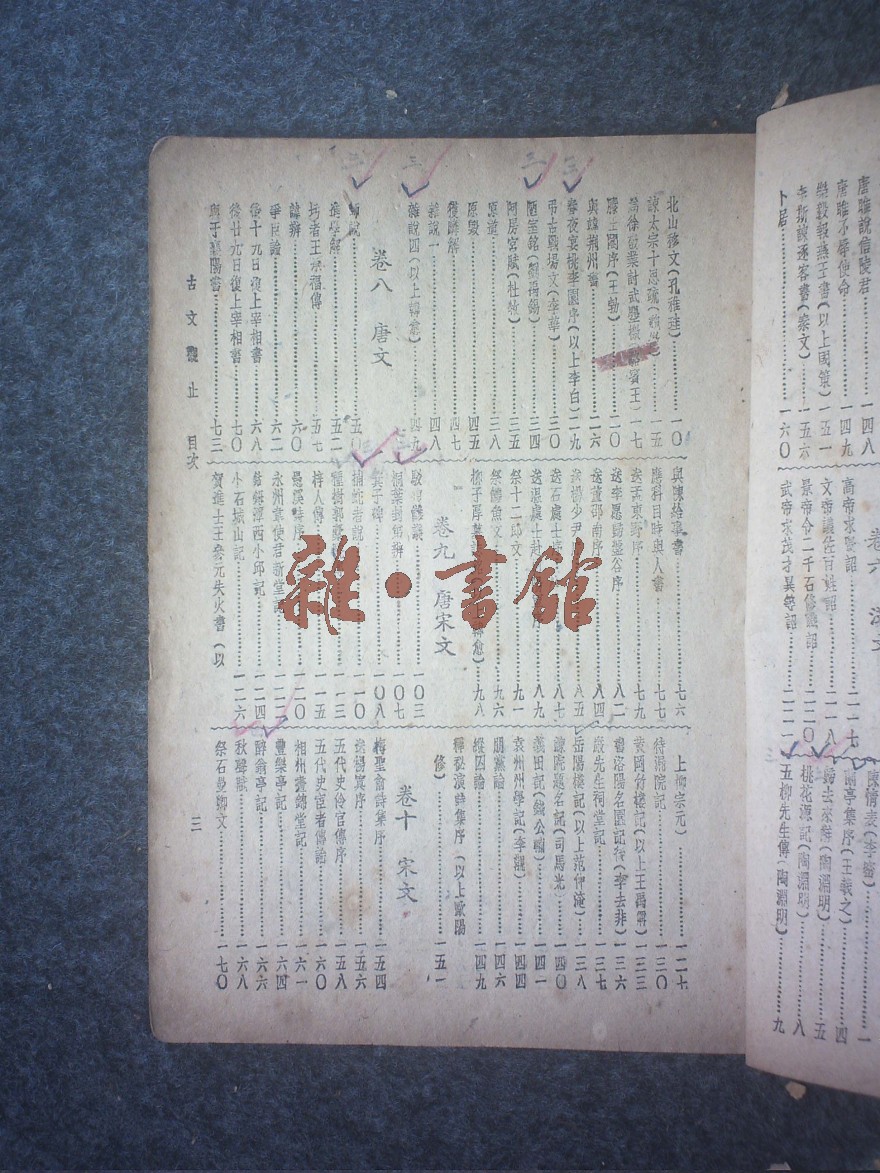 卜居……一六〇
李斯諫逐客書(秦文)……一五六
樂毅報燕王書(以上國策)……一五一
唐雎不辱使命……一四九
唐雎說信陵君……一四八
卷六 漢文
高帝求賢詔……二一七
文帝議佐百姓詔……二一八
景帝令二千石修職詔……二二〇
武帝求茂才異等詔……二二一
陳情表(李密)……一
蘭亭集序(王羲之)……四
歸去來辭(陶淵明)……五
桃花源記(陶淵明)……八
五柳先生傳(陶淵明)……九
北山移文(孔稚珪)……一〇
諫太宗十思疏(魏徵)……一五
爲徐敬業討武曌檄(駱賓王)一七
滕王閣序(王勃)……二〇
與韓荊州書……二六
春夜宴桃李園序(以上李白)二九
弔古戰場文(李華)……三〇
陋室銘(劉禹錫)……三四
阿房宮賦(杜牧)……三五
原道……三八
原毀……四五
獲麟解……四七
雜說一……四八
雜說四(以上韓愈)……四九
卷八 唐文
師說……五〇
進學解……五二
圬者王承福傳……五七
諱辯……六〇
爭臣論……六二
後十九日復上宰相書……六八
後廿九日復上宰相書……七〇
與于襄陽書……七三
與陳給事書……七六
應科目時與人書……七七
送孟東野序……七九
送李愿歸盤谷序……八二
送董邵南序……八四
送楊少尹序……八五
送石處士序……八七
送溫處士赴……序……八九
祭十二郎文……九一
祭鱷魚文……九六
柳子厚墓……韓愈)……九八
卷九 唐宋文
駁復讎議……一〇三
桐葉封弟辨……一〇七
箕子碑……一〇八
捕蛇者說……一一〇
種樹郭……一一三
梓人傳……一一五
愚溪詩序……一二〇
永州韋使君新堂記……一二二
鈷鉧潭西小邱記……一二四
小石城山記……一二六
賀進士王參元失火書(以
上柳宗元)……一二七
待漏院記……一三〇
黃岡竹樓記(以上王禹偁)一三三
書洛陽名園記後(李去非)一三六
嚴先生祠堂記……一三七
岳陽樓記(以上范仲淹)……一三八
諫院題名記(司馬光)……一四〇
義田記(錢公輔)……一四一
袁州州學記(李覯)……一四四
朋黨論……一四六
縱囚論……一四九
釋祕演詩集序(以上歐陽
修)……一五一
卷十 宋文
梅聖俞詩集序……一五四
送楊寘序……一五六
五代史伶官傳序……一五八
五代史宦者傳論……一六〇
相州晝錦堂記……一六一
豐樂亭記……一六四
醉翁亭記……一六六
秋聲賦……一六八
祭石曼卿文……一七〇
古文觀止 目次
三
雜·書館